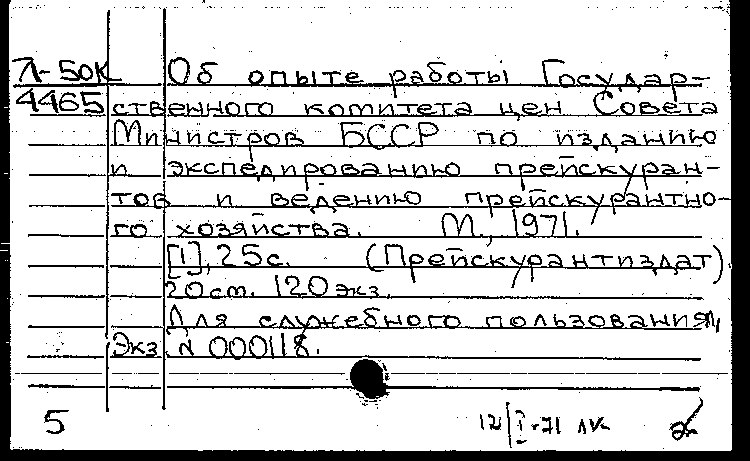 Л-50К Об опыте работы Государ-
4465 ственного комитета цен Совета
Министров БССР по изданию
и экспедированию прейскуран-
тов и ведению прейскурантно-
го хозяйства. М., 1971.
[1], 25 с. (Прейскурантиздат)
20 см. 120 экз.
Для служебного пользования,
Экз. N 000118.
5 12/I-71